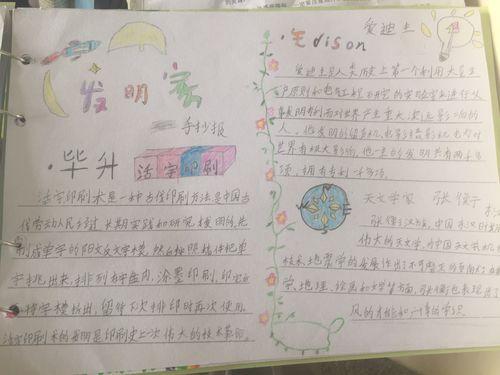 发明家
手抄报
·毕升 活字印刷
活字印刷术是一种古代印刷方法是中国古
代劳动人民经过长期实践和研究
制成单字的阳文反文字模,然后按照稿件把单
字挑出来,排列在字盘内,涂墨印刷,印完
将字模拆出,留待下次排印时再次使用。
活字印刷术的发明是印刷史上一次伟大的技术革命。
·Edison 爱迪生
爱迪生是人类历史上第一个利用大量生
产原则和电气工程研究的实验室来进行从
事发明专利而对世界产生重大深远影响的
人。他发明的留声机、电影摄影机、电灯对
世界有极大影响,他一生的发明共有两千多
项,拥有专利一千多项。
天文学家 张衡
张衡汉族,中国
伟大的天文学,为中国天文
技术、地震学的发展作出了不可磨灭的贡献
学、地理、绘画和文学等方面,张衡也表现出了
凡的才能和广博的学识。